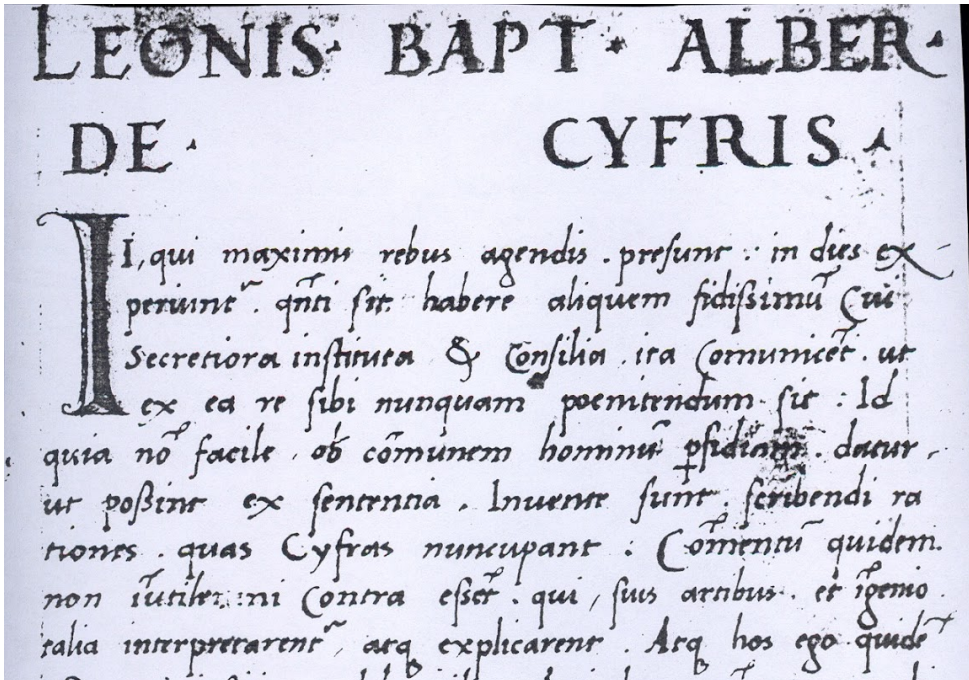 LEONIS· BAPT· ALBER·
DE· CYFRIS·
II, qui maximis rebus agendis . presunt : in dies ex-
periunt᷑ . qñti sit habere aliquem fidissimũ Cui
Secretiora instituta & Consilia . ita Comunicẽt . ut
ex ea re sibi nunquam poenitendum sit : Id
quia nõ facile . ob cõmunem hominũ ꝑfidiam . datur .
ut possint ex sententia . Invente sunt . scribendi ra
tiones . quas Cyfras nuncupant : Cõmentũ quidem
non iũtile : ni Contra essẽt . qui , suis artibus . et ĩgenio .
talia interpretarent᷑ . atq explicarent . Atq hos ego quidẽ